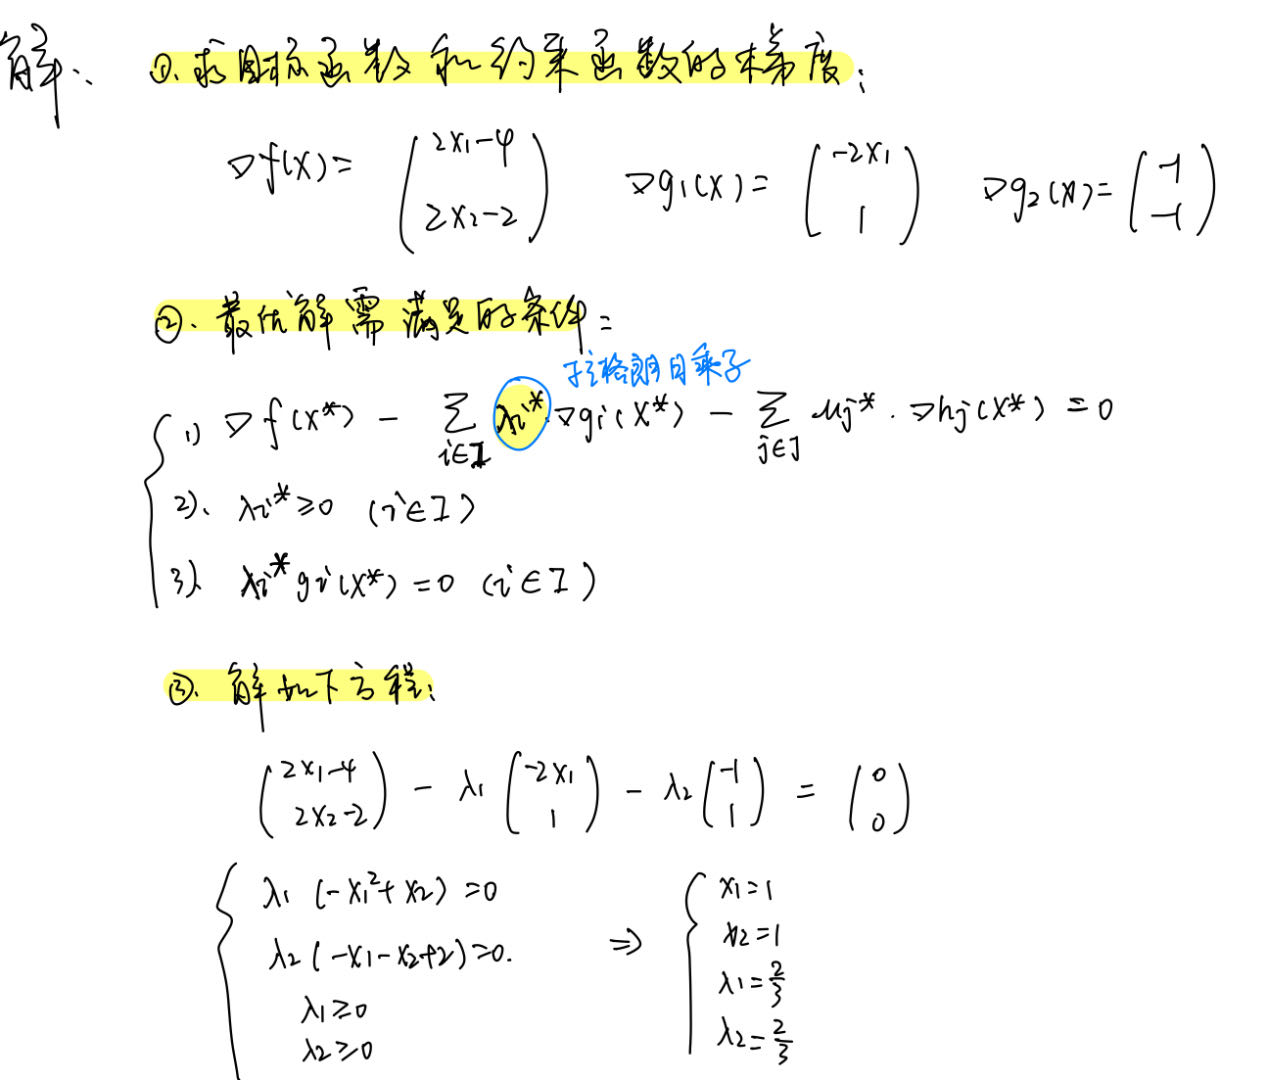 解:
①.求目标函数和约束函数的梯度:
∇f(x)= (2x₁-4 2x₂-2) ∇g₁(x)= (-2x₁ 1) ∇g₂(x)= (-1 -1)
②.最优解需满足的条件:
拉格朗日乘子
1) ∇f(x*) - Σ i∈I λi* ∇gi(x*) - Σ j∈J μj* · ∇hj(x*) = 0
2). λi* ≥ 0 (i∈I)
3). λi* gi(x*) = 0 (i∈I)
③.解如下方程:
(2x₁-4 2x₂-2) - λ₁ (-2x₁ 1) - λ₂ (-1 1) = (0 0)
λ₁ (-x₁²+x₂) = 0
λ₂ (-x₁-x₂+2) = 0.
λ₁ ≥ 0
λ₂ ≥ 0
⇒
x₁=1
x₂=1
λ₁=2/3
λ₂=2/3